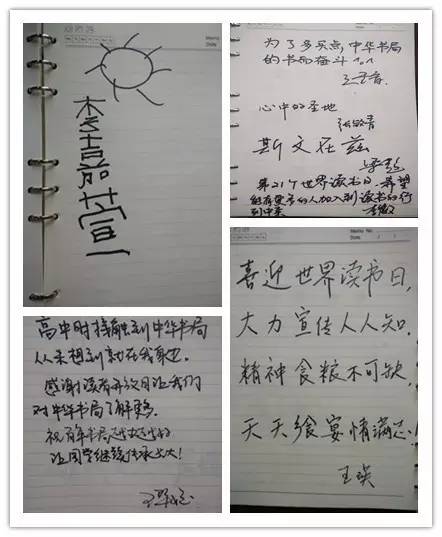 为了多买点中华书局
的书而奋斗
心中的圣地
斯文在兹
第21个世界读书日,希望
能有更多的人加入到读书的行
列中来
高中时接触到中华书局
从未想到就在我身边.
感谢读者开放日让我们
对中华书局了解更多.
祝百年书局越
让同学继续传承光大!
Memo No.
Date
喜迎世界读书日,
大力宣传人人知.
精神食粮不可缺,
天天飨宴情满
王瑛